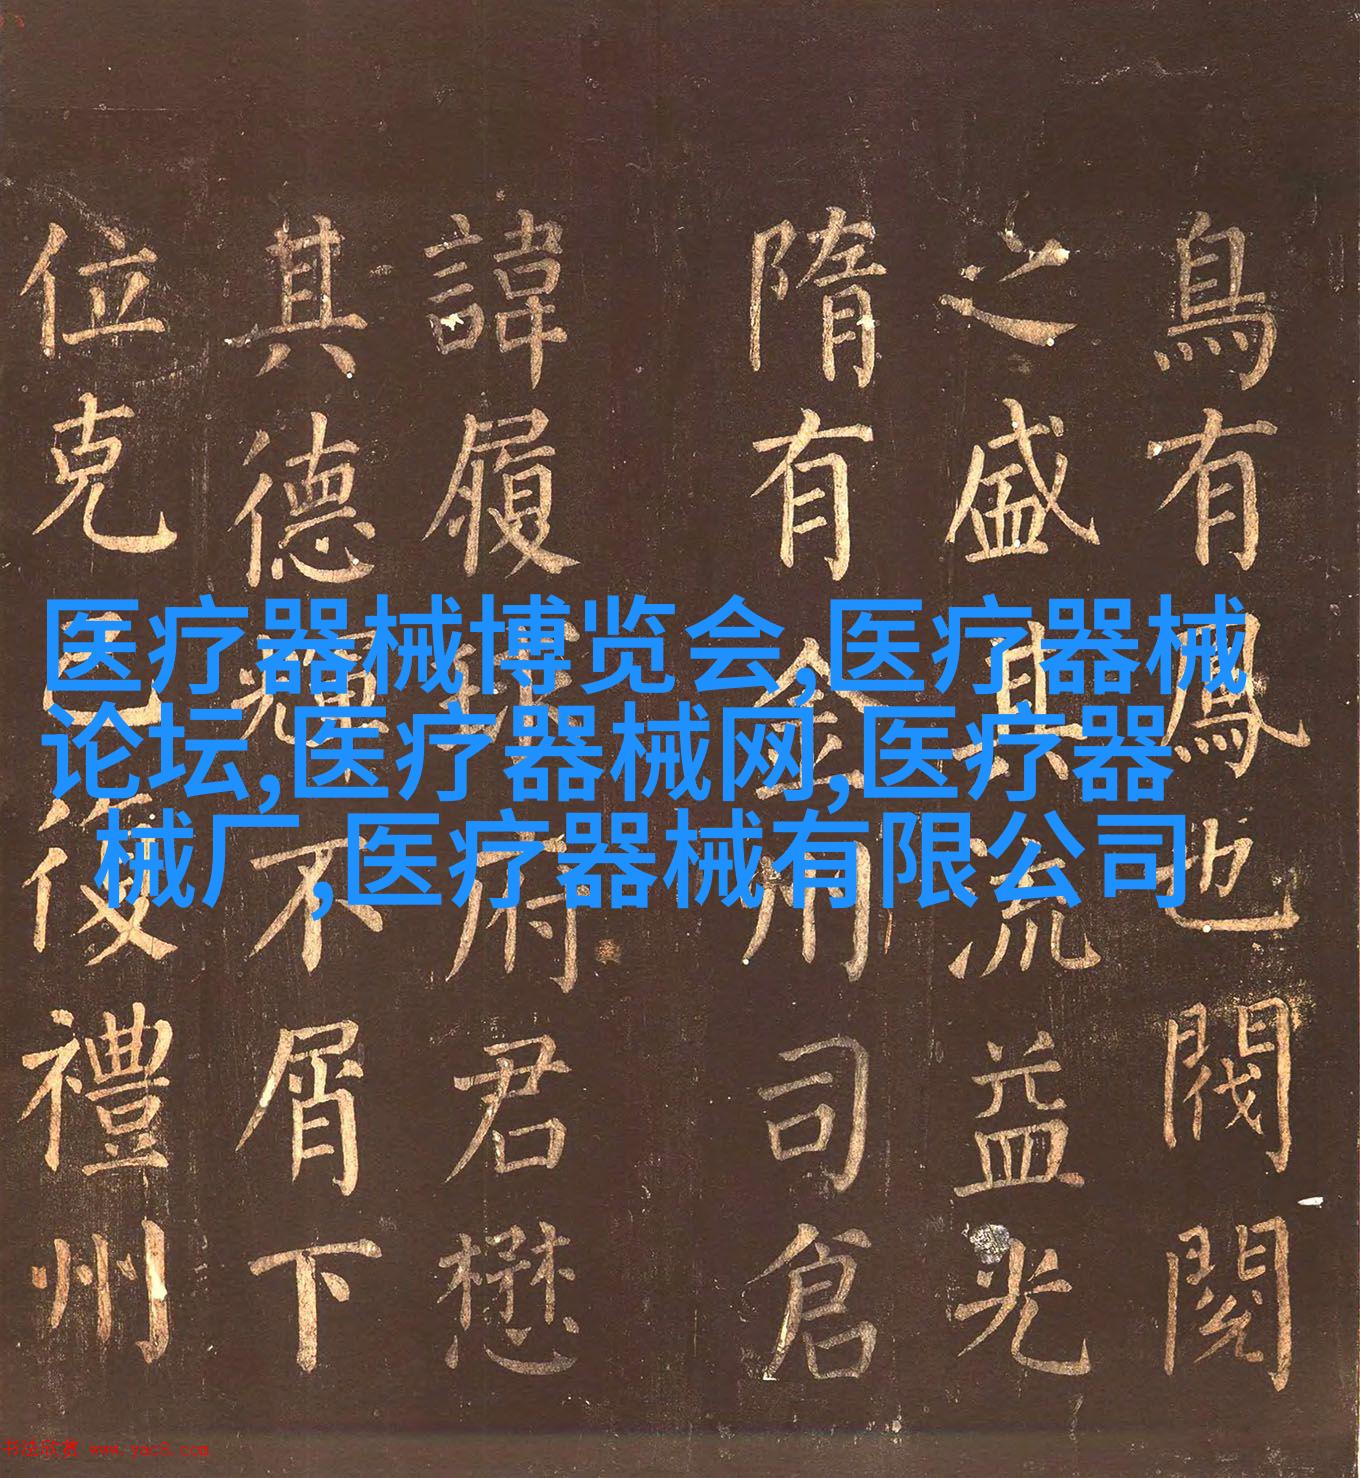 鳥有鳳也閥閱
之盛其流益光
隋有金州司倉
諱履府君懋
其德不屑下
位克己復禮州
医疗器械博览会,医疗器械
论坛,医疗器械网,医疗器
械厂,医疗器械有限公司
书法欣赏 www.yac8.com